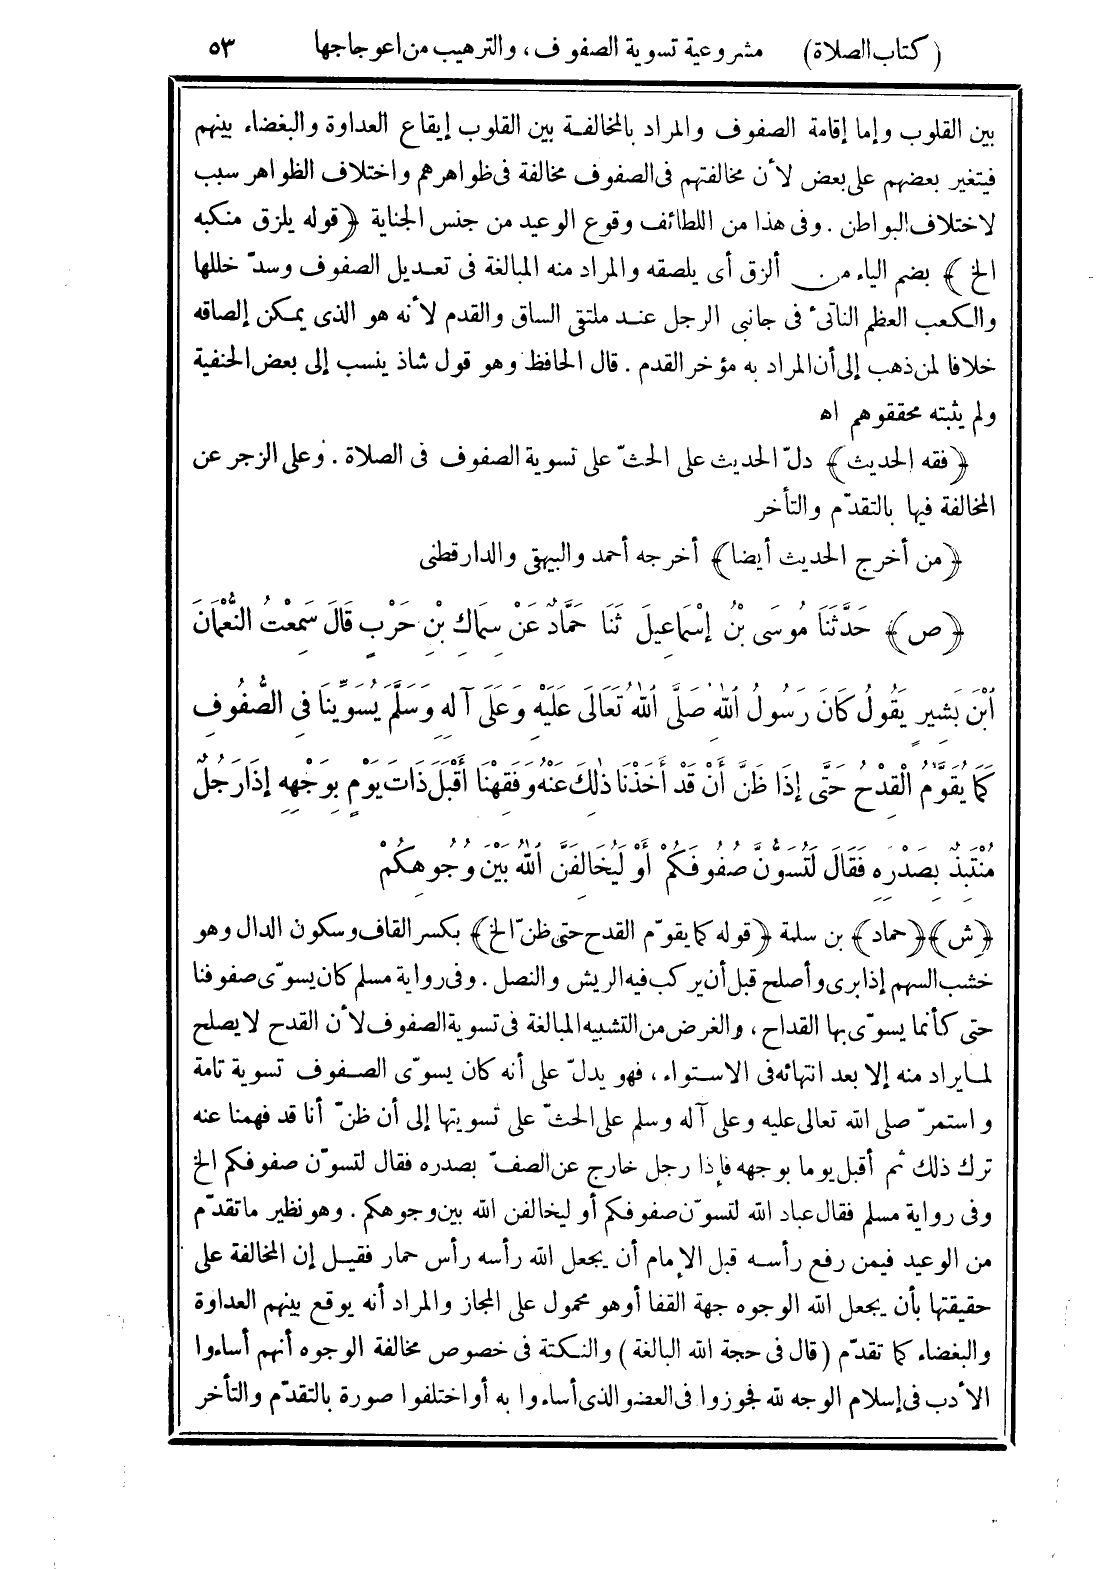 (كتاب الصلاة) مشروعية تسوية الصفوف، والترهيب من اعوجاجها ٥٣
بين القلوب وإما إقامة الصفوف والمراد بالمخالفة بين القلوب إيقاع العداوة والبغضاء بينهم
فيتغير بعضهم على بعض لأن مخالفتهم فى الصفوف مخالفة فى ظواهرهم واختلاف الظواهر سبب
لاختلاف البواطن . وفى هذا من اللطائف وقوع الوعيد من جنس الجناية ﴿قوله يلزق منكبه
الخ﴾ بضم الياء من ألزق أى يلصقه والمراد منه المبالغة فى تعديل الصفوف وسدّ خللها
والكعب العظم الناتئ فى جانبي الرجل عند ملتقى الساق والقدم لأنه هو الذى يمكن إلصاقه
خلافا لمن ذهب إلى أن المراد به مؤخر القدم . قال الحافظ وهو قول شاذ ينسب إلى بعض الحنفية
ولم يثبته محققوهم اه
﴿فقه الحديث﴾ دلّ الحديث على الحثّ على تسوية الصفوف فى الصلاة . وعلى الزجر عن
المخالفة فيها بالتقدّم والتأخر
﴿من أخرج الحديث أيضا﴾ أخرجه أحمد والبيهقى والدارقطنى
﴿ص﴾ حَدَّثَنَا مُوسَى بْنُ إِسْمَاعِيلَ ثَنَا حَمَّادٌ عَنْ سِمَاكِ بْنِ حَرْبٍ قَالَ سَمِعْتُ النُّعْمَانَ
ابْنَ بَشِيرٍ يَقُولُ كَانَ رَسُولُ اللهِ صَلَّى اللهُ تَعَالَى عَلَيْهِ وَعَلَى آلِهِ وَسَلَّمَ يُسَوِّينَا فِى الصُّفُوفِ
كَمَا يُقَوَّمُ الْقِدْحُ حَتَّى إِذَا ظَنَّ أَنْ قَدْ أَخَذْنَا ذٰلِكَ عَنْهُ وَفَقِهْنَا أَقْبَلَ ذَاتَ يَوْمٍ بِوَجْهِهِ إِذَا رَجُلٌ
مُنْتَبِذٌ بِصَدْرِهِ فَقَالَ لَتُسَوُّنَّ صُفُوفَكُمْ أَوْ لَيُخَالِفَنَّ اللهُ بَيْنَ وُجُوهِكُمْ
﴿ش﴾ ﴿حماد﴾ بن سلمة ﴿قوله كما يقوّم القدح حتى ظنّ الخ﴾ بكسر القاف وسكون الدال وهو
خشب السهم إذا برى وأصلح قبل أن يركب فيه الريش والنصل . وفى رواية مسلم كان يسوّى صفوفنا
حتى كأنما يسوّى بها القداح ، والغرض من التشبيه المبالغة فى تسوية الصفوف لأن القدح لا يصلح
لما يراد منه إلا بعد انتهائه فى الاستواء ، فهو يدلّ على أنه كان يسوّى الصفوف تسوية تامة
واستمرّ صلى الله تعالى عليه وعلى آله وسلم على الحثّ على تسويتها إلى أن ظنّ أنا قد فهمنا عنه
ترك ذلك ثم أقبل يوما بوجهه فإذا رجل خارج عن الصفّ بصدره فقال لتسوّن صفوفكم الخ
وفى رواية مسلم فقال عباد الله لتسوّن صفوفكم أو ليخالفن الله بين وجوهكم . وهو نظير ما تقدّم
من الوعيد فيمن رفع رأسه قبل الإمام أن يجعل الله رأسه رأس حمار فقيل إن المخالفة على
حقيقتها بأن يجعل الله الوجوه جهة القفا أو هو محمول على المجاز والمراد أنه يوقع بينهم العداوة
والبغضاء كما تقدّم (قال فى حجة الله البالغة) والنكتة فى خصوص مخالفة الوجوه أنهم أساءوا
الأدب فى إسلام الوجه لله فجوزوا فى العضو الذى أساءوا به أو اختلفوا صورة بالتقدّم والتأخر